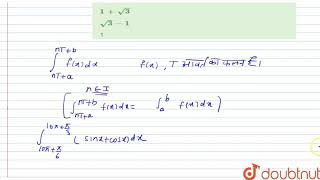 1 + √3
√3 − 1
1
∫_{nT+a}^{nT+b} f(x)dx f(x), T आवर्त का फलन है।
n ∈ I
[∫_{nT+a}^{nT+b} f(x)dx = ∫_a^b f(x)dx]
∫_{10π+π/6}^{10π+π/3} (sinx+cosx)dx
doubtnut